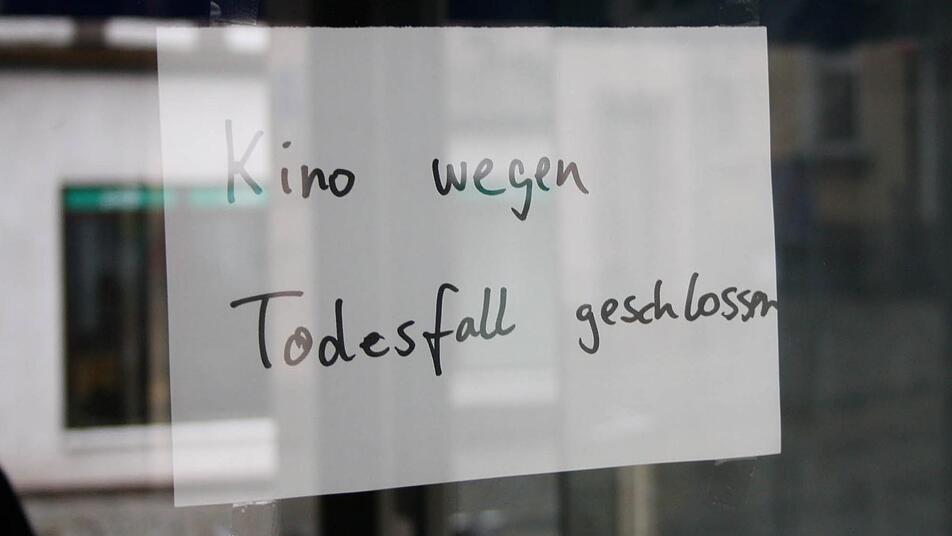 Kino wegen
Todesfall geschlossen